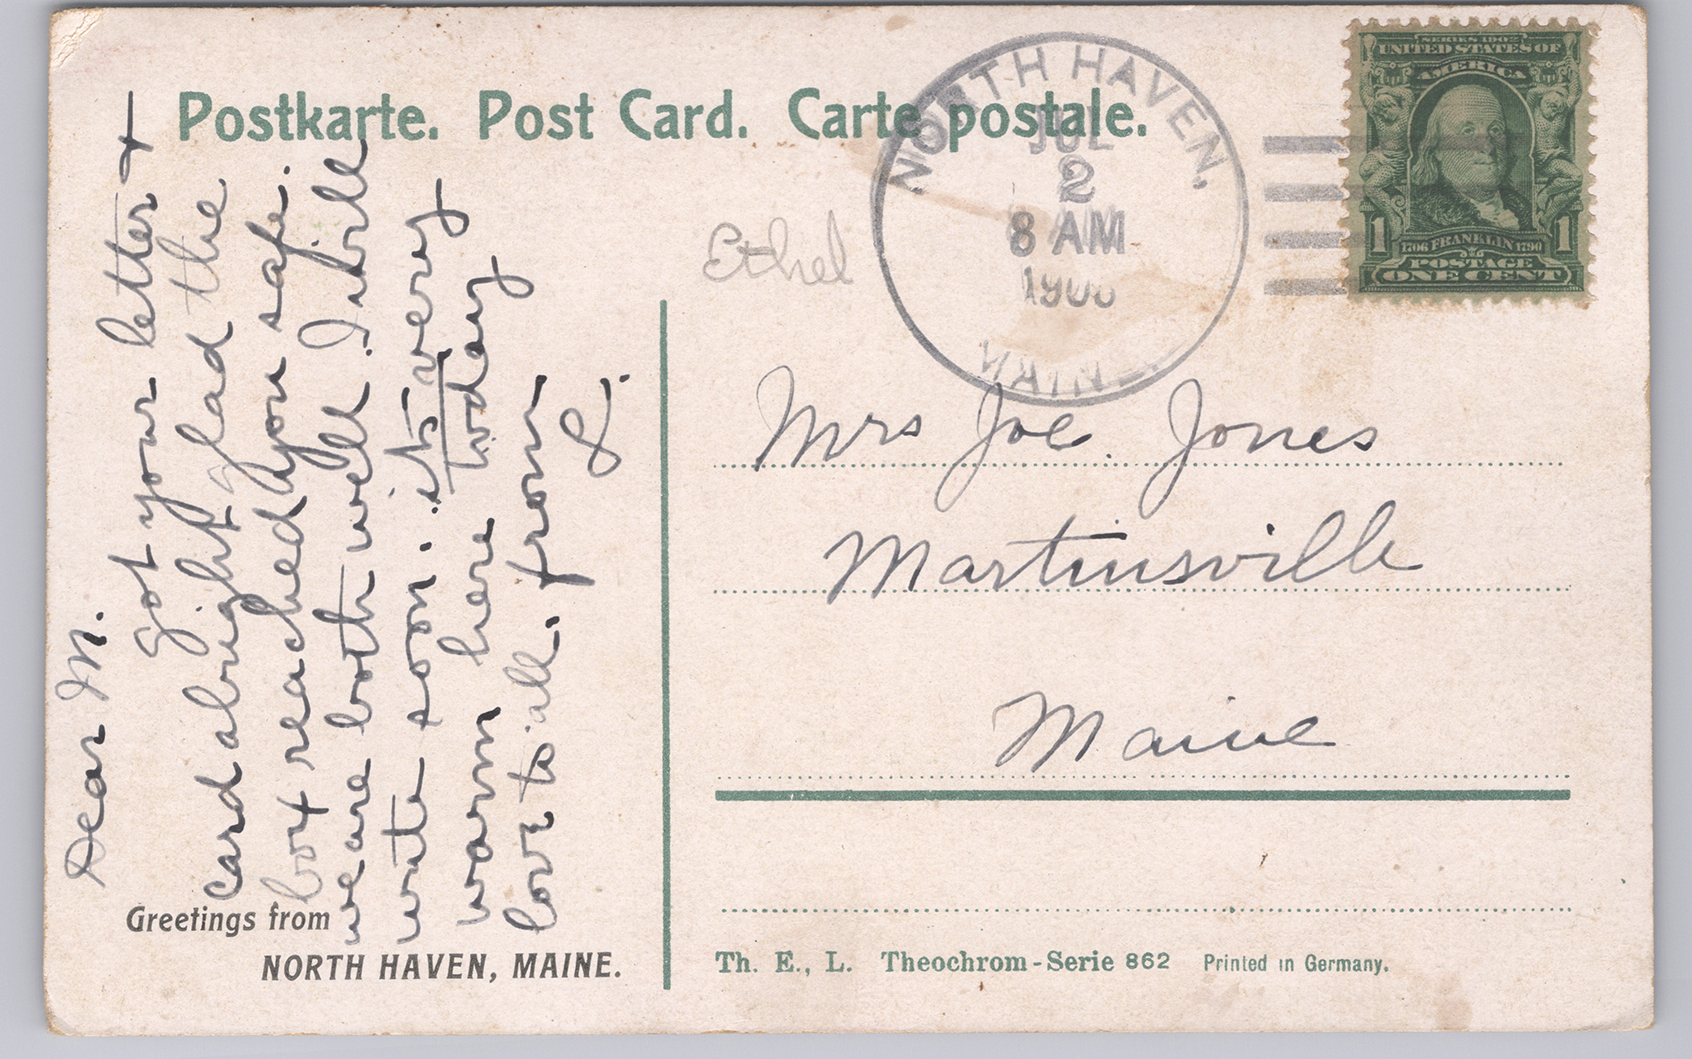 Postkarte. Post Card. Carte postale.
NORTH HAVEN,
JUL
2
8 AM
MAINE.
SERIES 1902
UNITED STATES OF
AMERICA
1 1706 FRANKLIN 1790 1
POSTAGE
ONE CENT
Ethel
Dear M.
got your letter +
card alright glad the
box reached you safe.
we are both well. I will
write soon. it's very
warm here today
love to all. from
L.
Mrs Joe. Jones
Martinsville
Maine
Greetings from
NORTH HAVEN, MAINE.
Th. E., L. Theochrom-Serie 862 Printed in Germany.